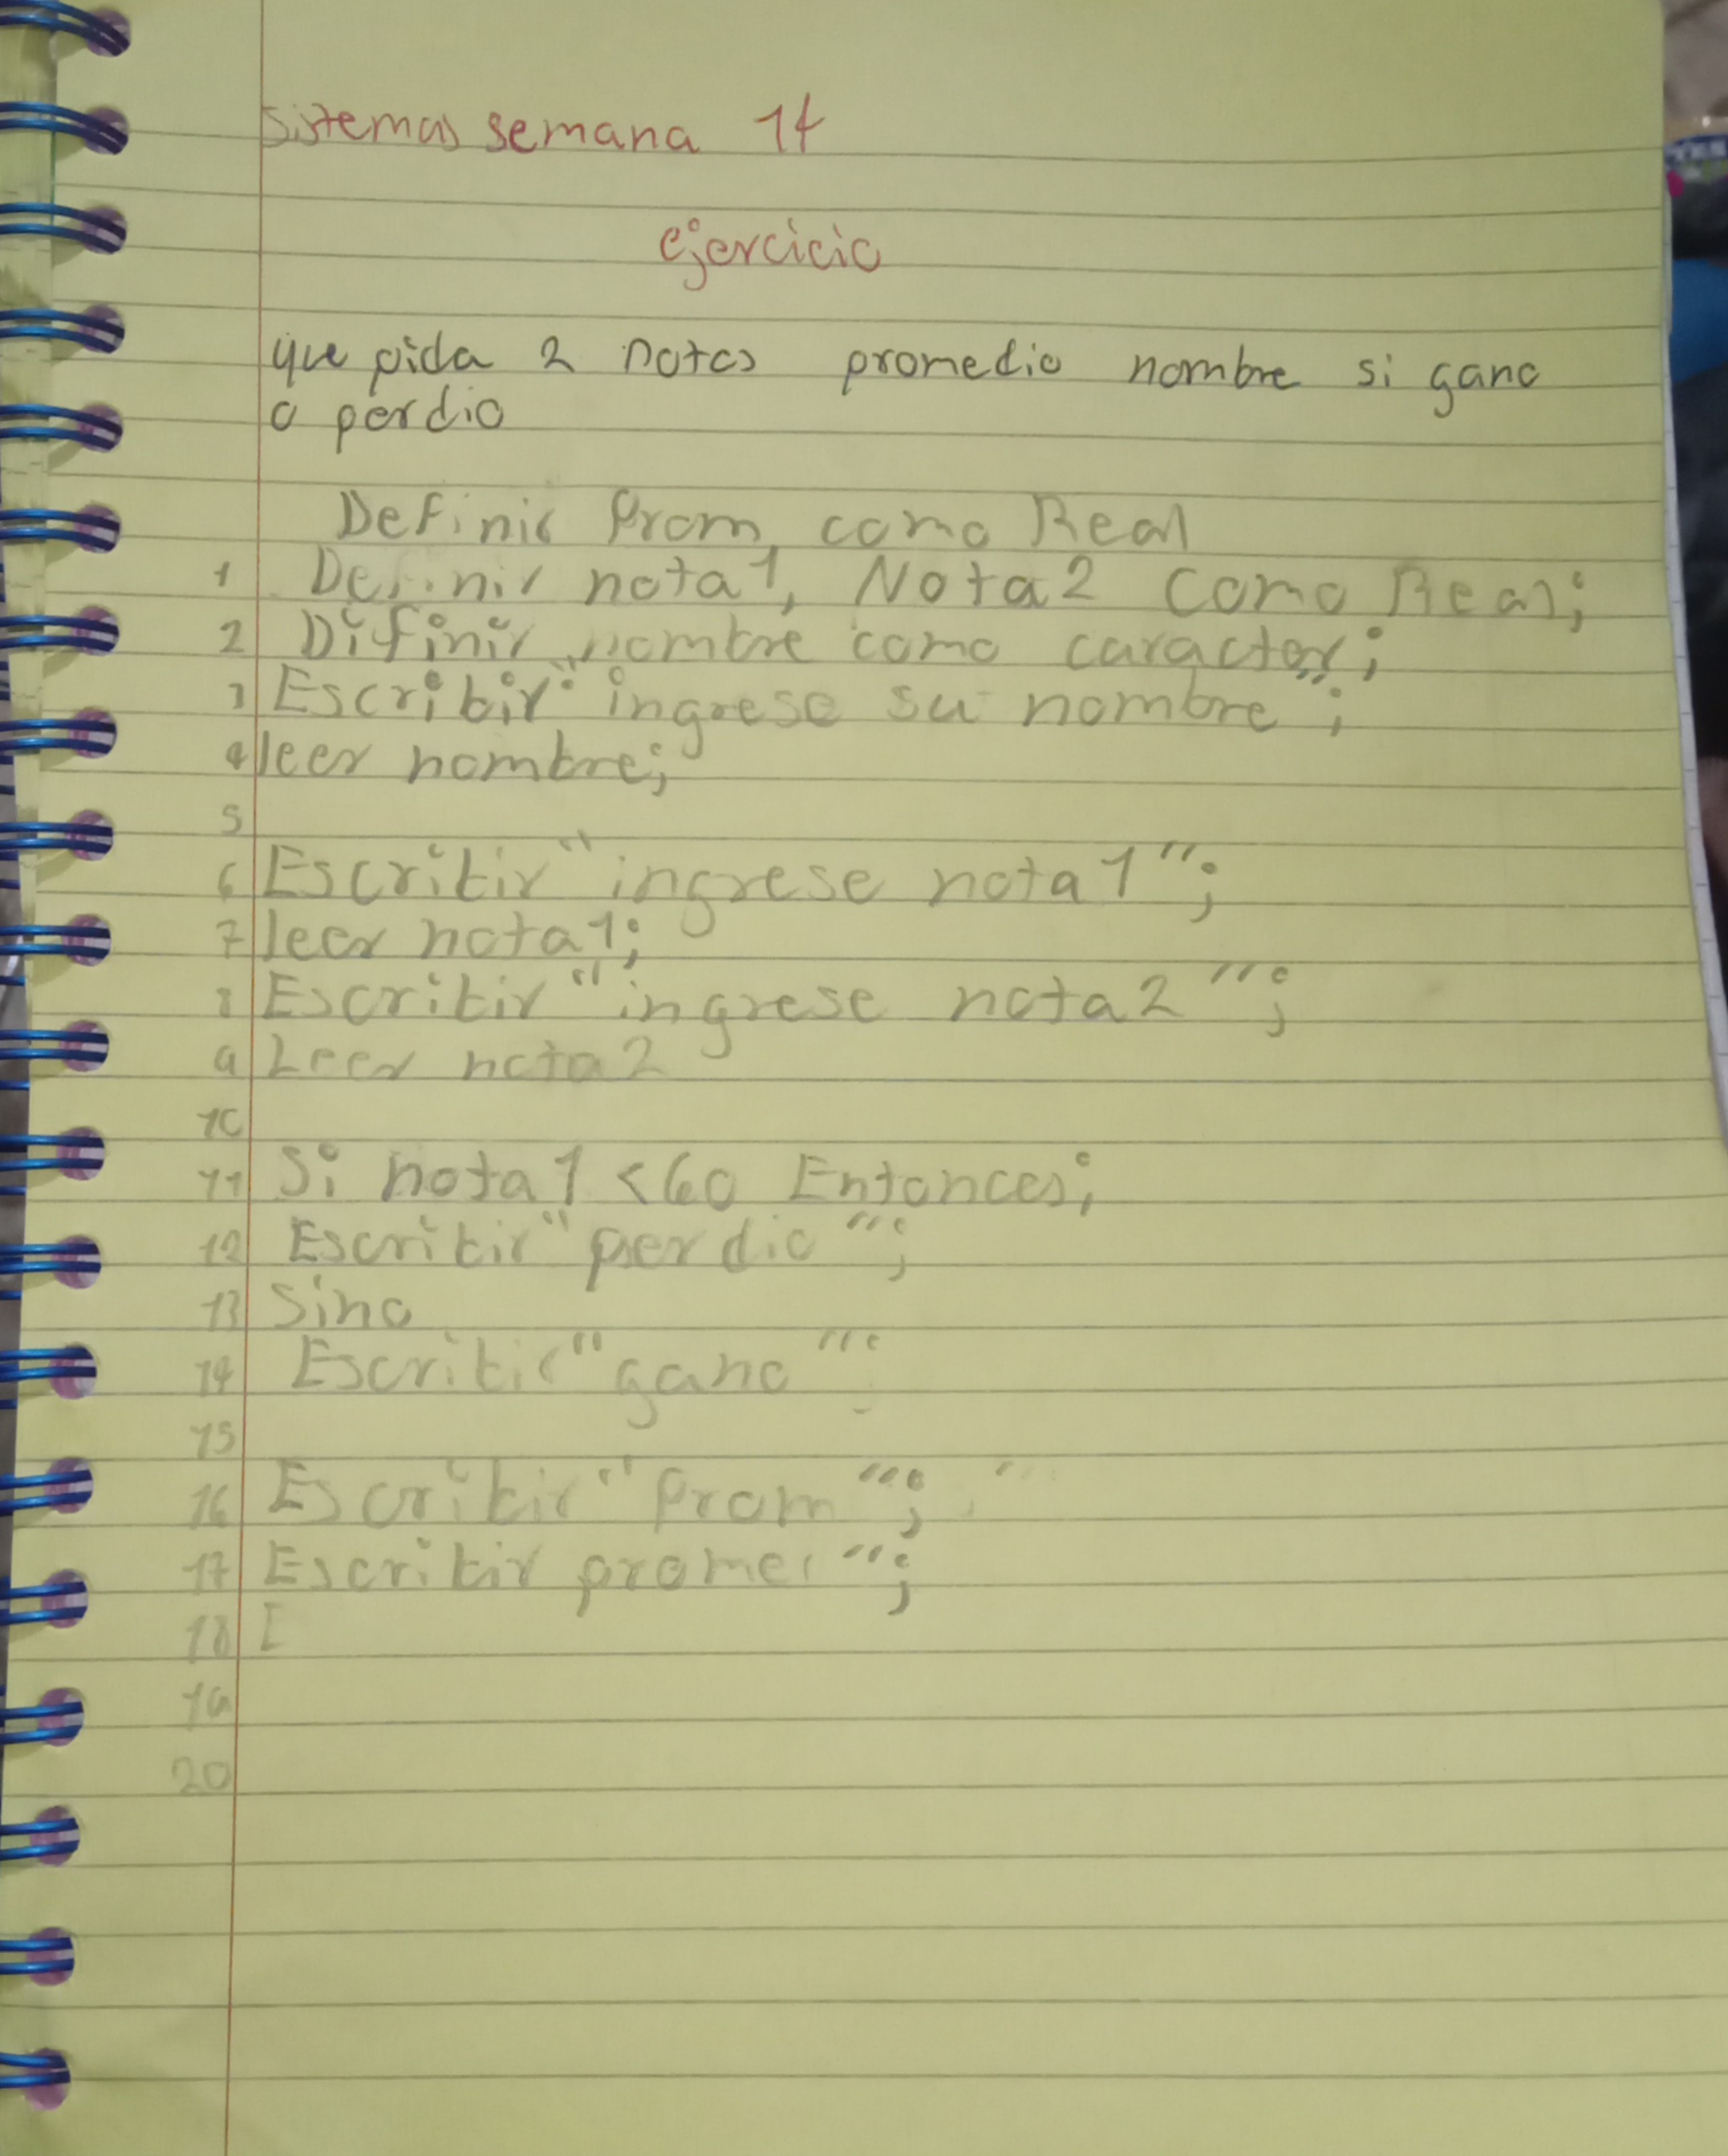 sistemas semana 14
ejercicio
que pida 2 notas promedio nombre si gano
o perdio
Definir Prom como Real
1 Definir nota1, Nota2 Como Real;
2 Difinir nombre como caracter;
3 Escribir "ingrese su nombre";
4 leer nombre;
5
6 Escribir "ingrese nota1";
7 leer nota1;
8 Escribir "ingrese nota2";
9 Leer nota2
10
11 Si nota1 <60 Entonces;
12 Escribir "perdio";
13 Sino
14 Escribir "gano";
15
16 Escribir "Prom";
17 Escribir ";
18 E
19
20